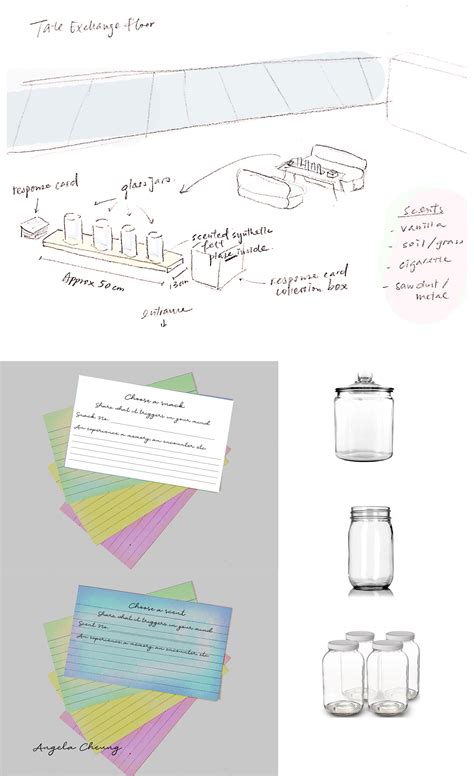 Tate Exchange Floor
response card
glass jars.
scented synthetic
felt
place inside.
Approx 50cm
13cm
response card
collection box
entrance
scents
- vanilla
- soil/grass
- cigarette
- sawdust/
metal
Choose a snack
Share what it triggers in your mind
Snack No.
An experience a memory an encounter etc
Choose a scent
Share what it triggers in your mind
Scent No.
An experience a memory an encounter etc
Angela Cheung